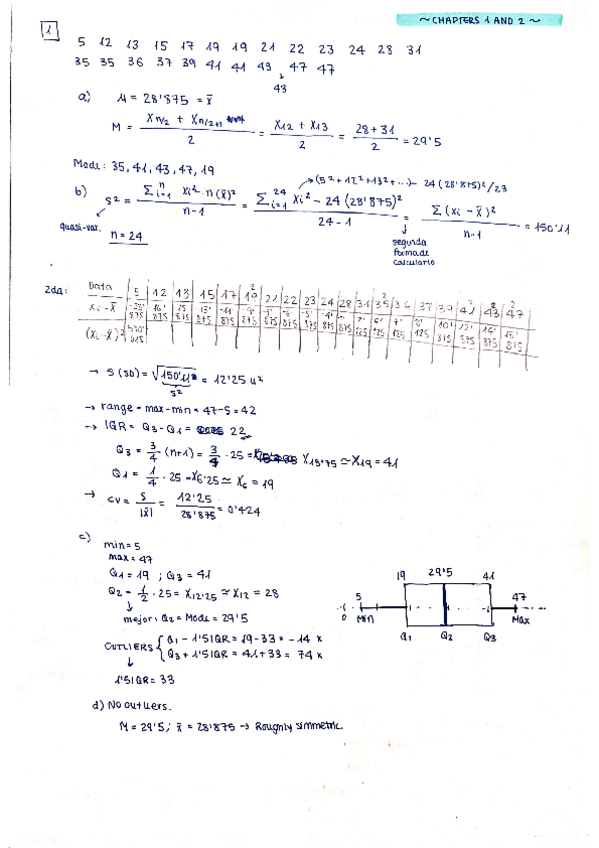 ~CHAPTERS 1 AND 2~
1
5 12 13 15 17 19 19 21 22 23 24 28 31
35 35 36 37 39 41 41 43 47 47
43
a) μ = 28'875 = x̄
M = (X n/2 + X n/2+1) / 2 = (X12 + X13) / 2 = (28+31) / 2 = 29'5
Mode: 35, 41, 43, 47, 19
b) s² = (Σ i=1 n xi² - n(x̄)²) / (n-1) = (Σ i=1 24 xi² - 24(28'875)²) / (24-1) = Σ(xi - x̄)² / (n-1) = 150'11
(5²+12²+13²+...) - 24(28'875)²/23
quasi-var.
n = 24
segunda
forma de
calcularlo
2da:
Data 5 12 13 15 17 19 21 22 23 24 28 31 35 36 37 39 41 43 47
xi - x̄
(xi - x̄)²
→ S(SD) = √150'11 = 12'25 u²
s²
→ range = max-min = 47-5 = 42
→ IQR = Q3 - Q1 = 22
Q3 = 3/4 (n+1) = 3/4 · 25 = X18'75 ≃ X19 = 41
Q1 = 1/4 · 25 = X6'25 ≃ X6 = 19
→ CV = S/|x̄| = 12'25/28'875 = 0'424
c) min = 5
max = 47
Q1 = 19 ; Q3 = 41
Q2 = 1/2 · 25 = X12'25 ≃ X12 = 28
mejor: Q2 = Mode = 29'5
OUTLIERS { Q1 - 1'5IQR = 19-33 = -14 x
Q3 + 1'5IQR = 41+33 = 74 x
1'5IQR = 33
19 29'5 41
5 47
0 Min Q1 Q2 Q3 Max
d) No outliers.
M = 29'5 ; x̄ = 28'875 → Roughly simmetric.